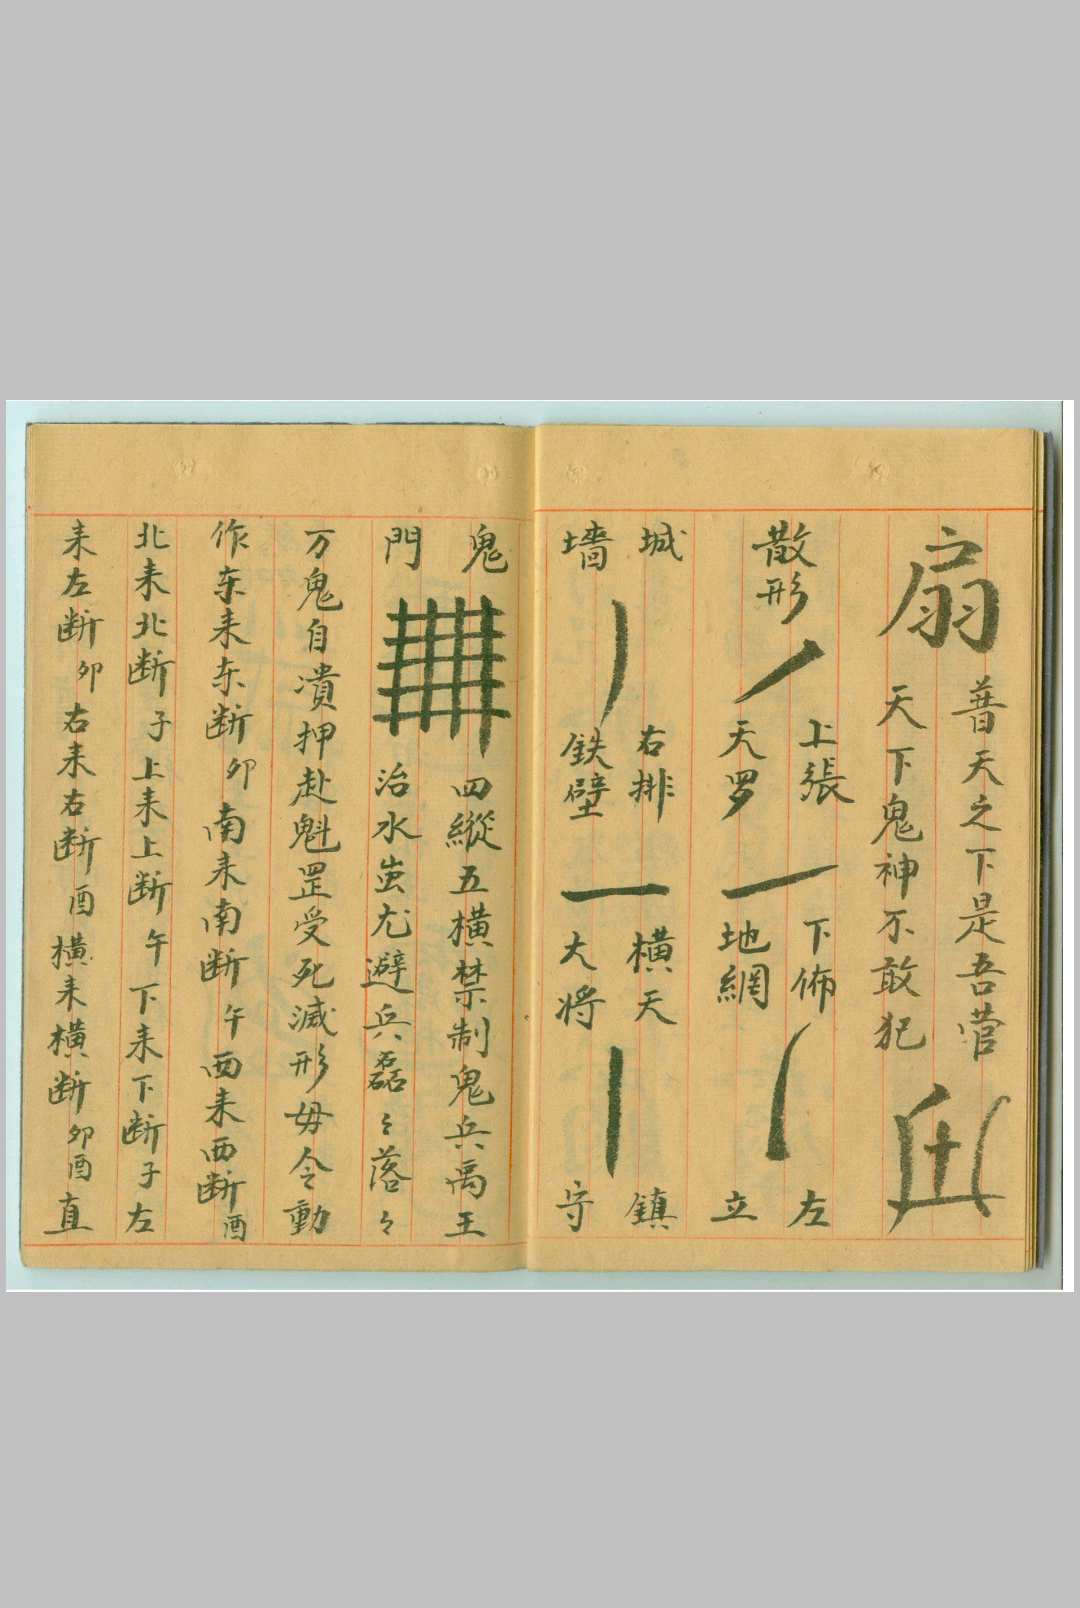 扇
普天之下是吾营
天下鬼神不敢犯
散形
上張
天罗
下佈
地網
左
立
城
墻
右排
鉄壁
橫天
大将
鎮
守
鬼
四縱五橫禁制鬼兵禹王
門
治水蚩尤避兵磊々落々
万鬼自潰押赴魁罡受死滅形毋令動
作东来东断卯南来南断午西来西断酉
北来北断子上来上断午下来下断子左
来左断卯右来右断酉橫来橫断卯酉直